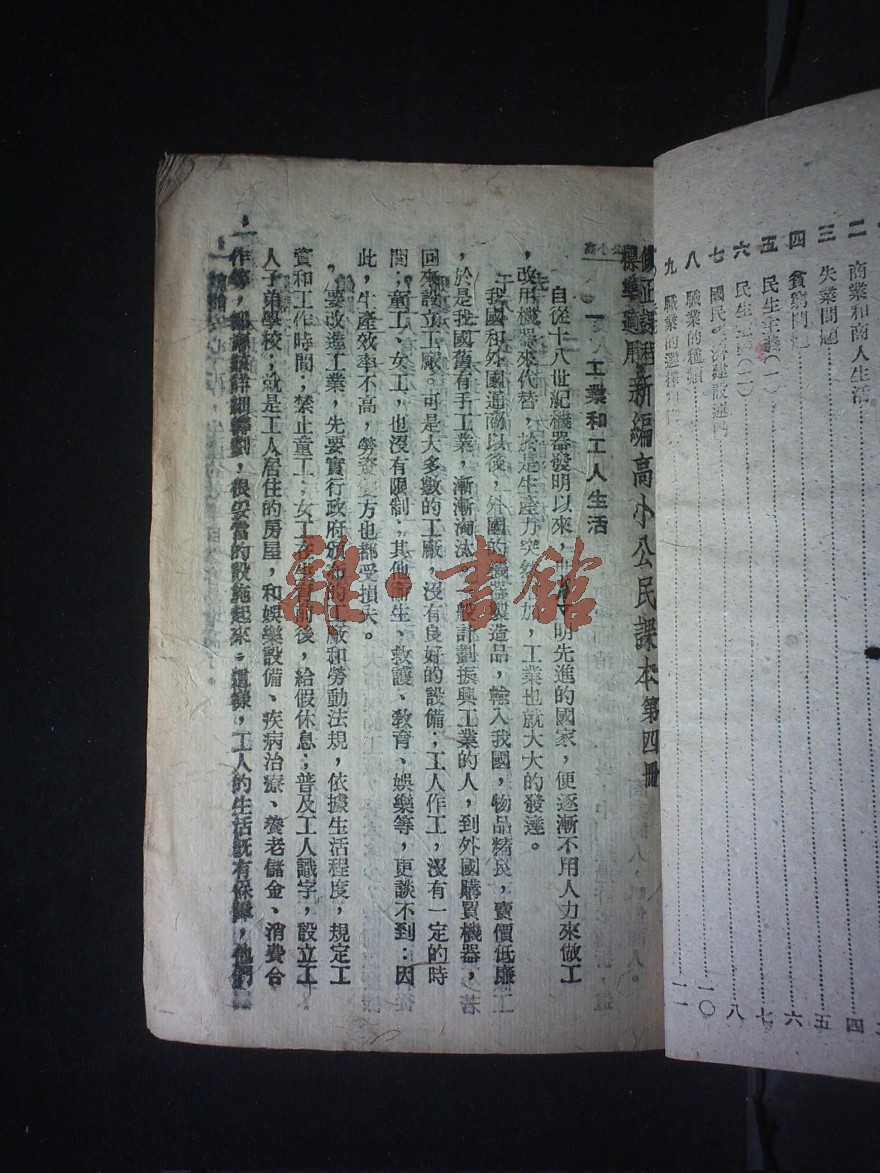 二 商業和商人生活 四
三 失業問題 五
四 貧窮問題 六
五 民生主義(一) 七
六 民生主義(二) 八
七 國民
八 職業的種類 一〇
九 職業的選擇 一一
修正課程
標準適用 新編高小公民課本第四冊
一、工業和工人生活
自從十八世紀機器發明以來,明先進的國家,便逐漸不用人力來做工
,改用機器來代替,於是生產力突然加,工業也就大大的發達。
我國和外國通商以後,外國的機器製造品,輸入我國,物品精良,賣價低廉
,於是我國舊有手工業,漸漸淘汰。般計劃振興工業的人,到外國購買機器,
回來設立工廠。可是大多數的工廠,沒有良好的設備;工人作工,沒有一定的時
間;童工、女工,也沒有限制;其他衛生、救護、教育、娛樂等,更談不到:因
此,生產效率不高,勞資雙方也都受損失。
要改造工業,先要實行政府頒布的工廠和勞動法規,依據生活程度,規定工
資和工作時間;禁止童工;女工在生育前後,給假休息;普及工人識字,設立工
人子弟學校;就是工人居住的房屋,和娛樂設備、疾病治療、養老儲金、消費合
作等,都應該詳細籌劃,很妥當的設施起來。這樣,工人的生活既有保障,他們
雜·書館